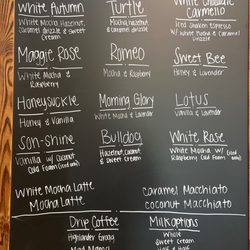 White Autumn
White Mocha, Hazelnut,
Caramel Drizzle
Turtle
Mocha, Hazelnut,
& Caramel Drizzle
White Chocolate
Carmello
Iced Shaken Espresso
w/ Mocha & Caramel
Drizzle
Maggie Rose
White Mocha &
Raspberry
Romeo
Mocha & Raspberry
Sweet Bee
Honey & Lavender
Honeysuckle
Honey & Vanilla
Morning Glory
White Mocha & Lavender
Lotus
Vanilla & Lavender
Son-shine
Vanilla w/ Coconut
Cold Foam
Bulldog
Hazelnut, Coconut
& Sweet Cream
White Rose
White Mocha w/
Raspberry Cold Foam
White Mocha Latte
Mocha Latte
Caramel Macchiato
Coconut Macchiato
Drip Coffee
Highlander Grogg
Milk Options
Whole
Sweet Cream
Half & Half